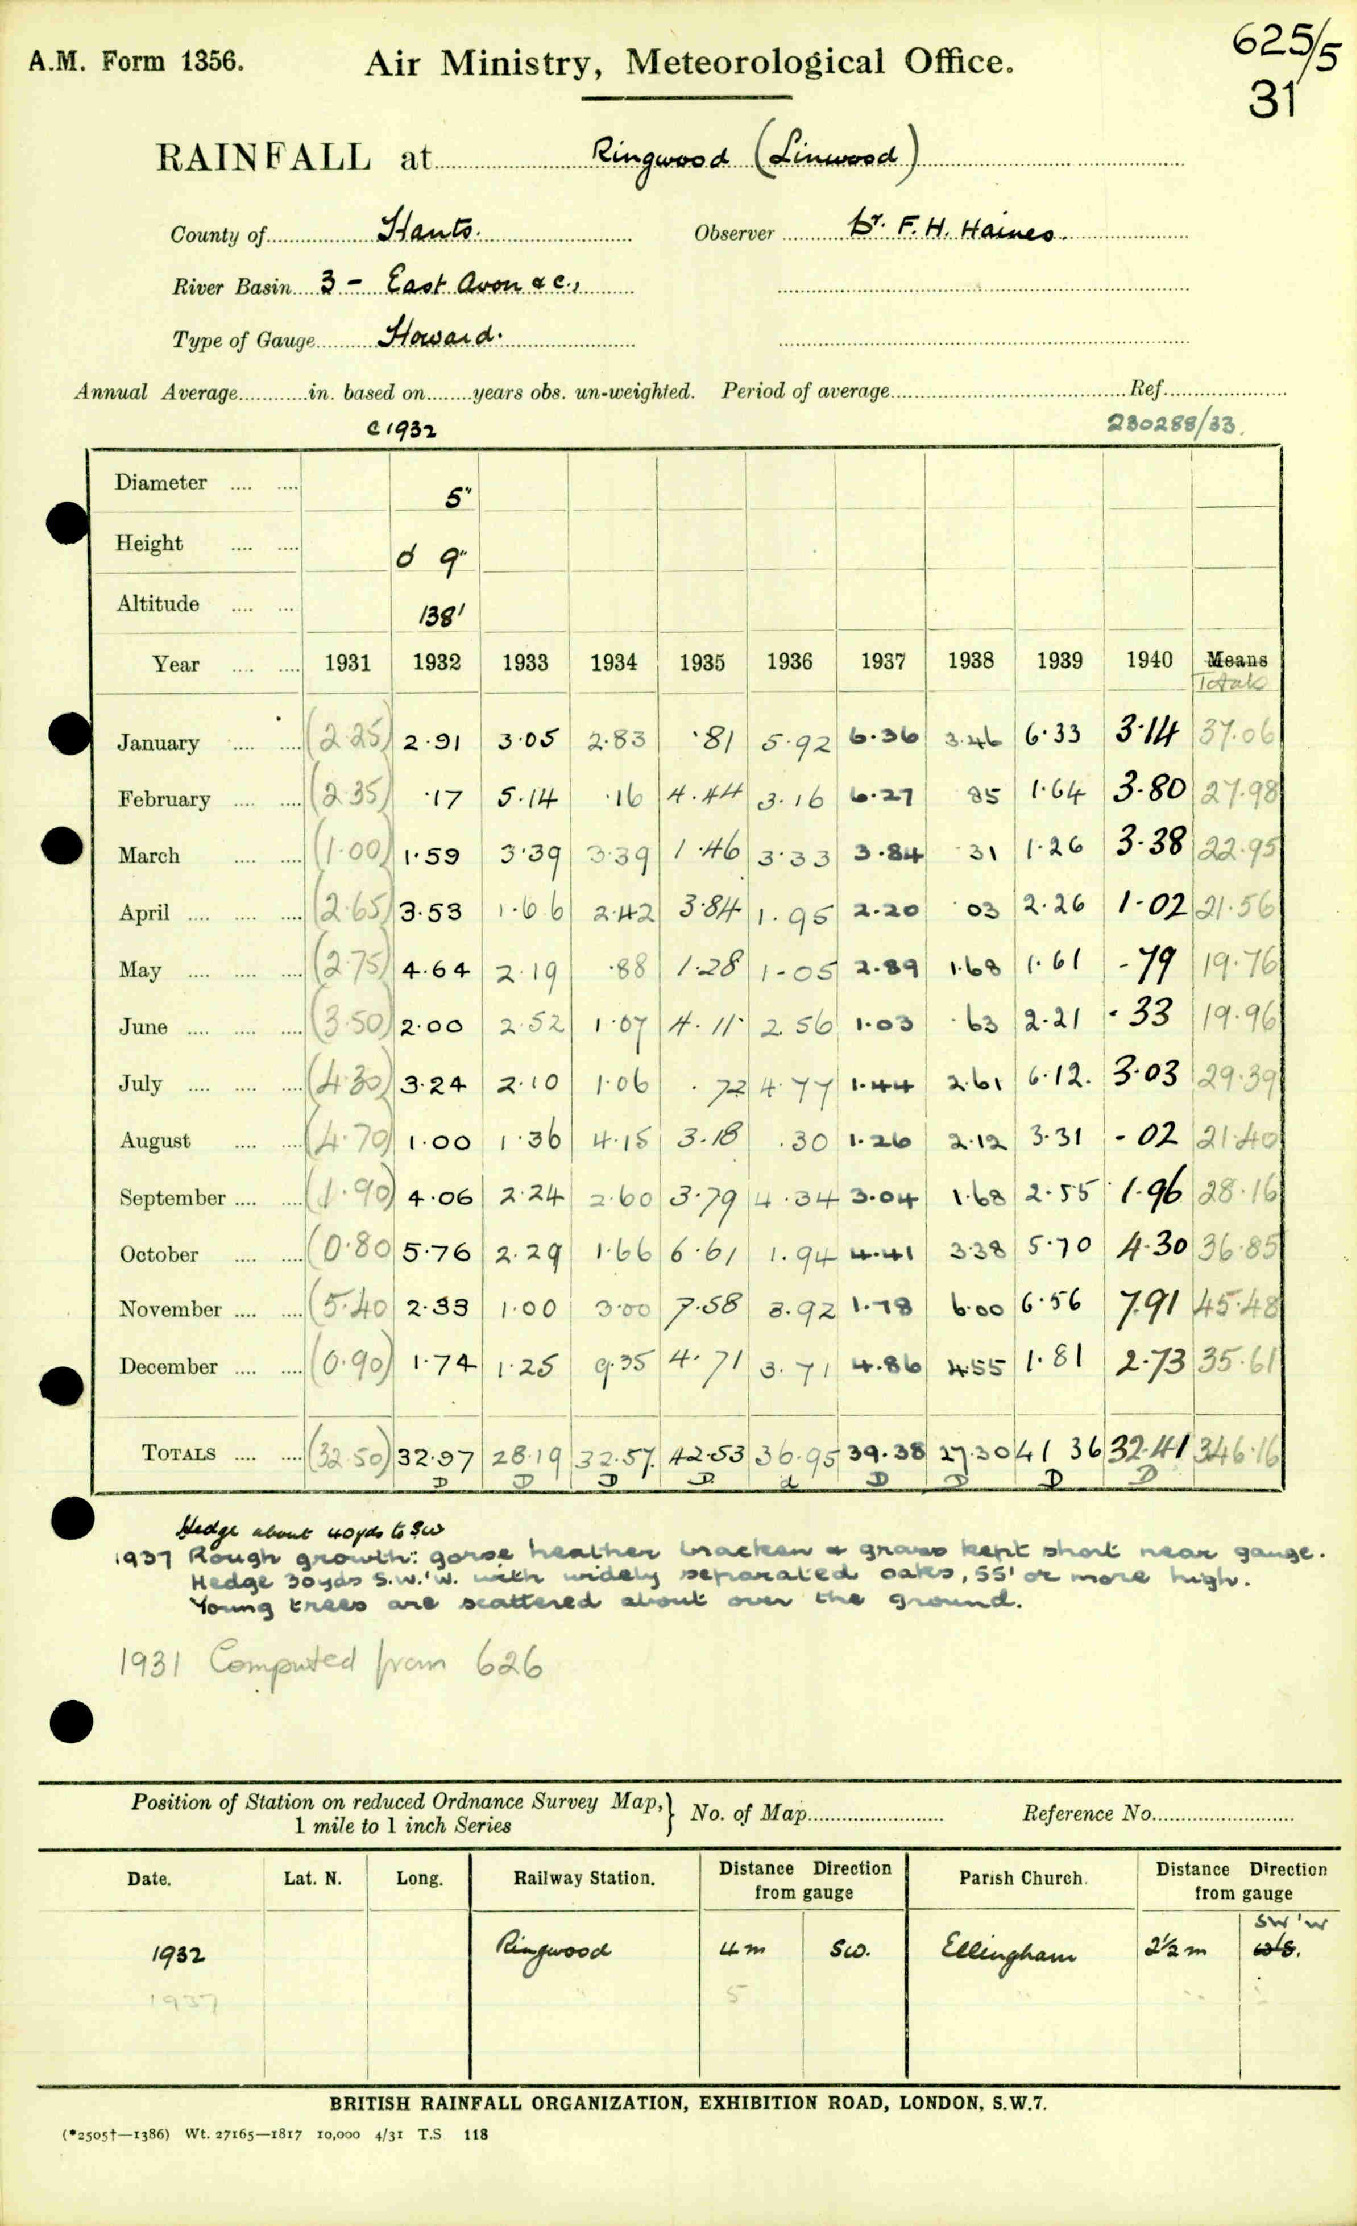 625/5
A.M. Form 1356. Air Ministry, Meteorological Office.
31
RAINFALL at Ringwood (Linwood)
County of Hants. Observer Dr. F. H. Haines.
River Basin 3 - East Avon & c.,
Type of Gauge Howard.
Annual Average in. based on years obs. un-weighted. Period of average Ref.
c 1932 230288/33.
Diameter 5"
Height 0 9"
Altitude 138'
Year 1931 1932 1933 1934 1935 1936 1937 1938 1939 1940 Means
Totals
January (2.25) 2.91 3.05 2.83 .81 5.92 6.36 3.46 6.33 3.14 37.06
February (2.35) .17 5.14 .16 4.44 3.16 6.27 85 1.64 3.80 27.98
March (1.00) 1.59 3.39 3.39 1.46 3.33 3.84 31 1.26 3.38 22.95
April (2.65) 3.53 1.66 2.42 3.84 1.95 2.20 .03 2.26 1.02 21.56
May (2.75) 4.64 2.19 .88 1.28 1.05 2.89 1.68 1.61 .79 19.76
June (3.50) 2.00 2.52 1.07 4.11 2.56 1.03 .63 2.21 .33 19.96
July (4.30) 3.24 2.10 1.06 .72 4.77 1.44 2.61 6.12. 3.03 29.39
August (4.70) 1.00 1.36 4.15 3.18 .30 1.26 2.12 3.31 .02 21.40
September (1.90) 4.06 2.24 2.60 3.79 4.34 3.04 1.68 2.55 1.96 28.16
October (0.80 5.76 2.29 1.66 6.61 1.94 4.41 3.38 5.70 4.30 36.85
November (5.40 2.33 1.00 3.00 7.58 3.92 1.78 6.00 6.56 7.91 45.48
December (0.90) 1.74 1.25 9.35 4.71 3.71 4.86 4.55 1.81 2.73 35.61
TOTALS (32.50) 32.97 28.19 32.57. 42.53 36.95 39.38 27.30 41 36 32.41 346.16
D D D D d D D D D
Hedge about 40yds to SW
1937 Rough growth: gorse heather bracken & grass kept short near gauge.
Hedge 30yds S.W.'W. with widely separated oaks, 55' or more high.
Young trees are scattered about over the ground.
1931 Computed from 626
Position of Station on reduced Ordnance Survey Map, } No. of Map Reference No.
1 mile to 1 inch Series
Date. Lat. N. Long. Railway Station. Distance Direction from gauge Parish Church. Distance Direction from gauge
SW'W
1932 Ringwood 4m SW. Ellingham 2½m
1937 " 5 "
BRITISH RAINFALL ORGANIZATION, EXHIBITION ROAD, LONDON, S.W.7.
(*2505†—1386) Wt. 27165—1817 10,000 4/31 T.S 118